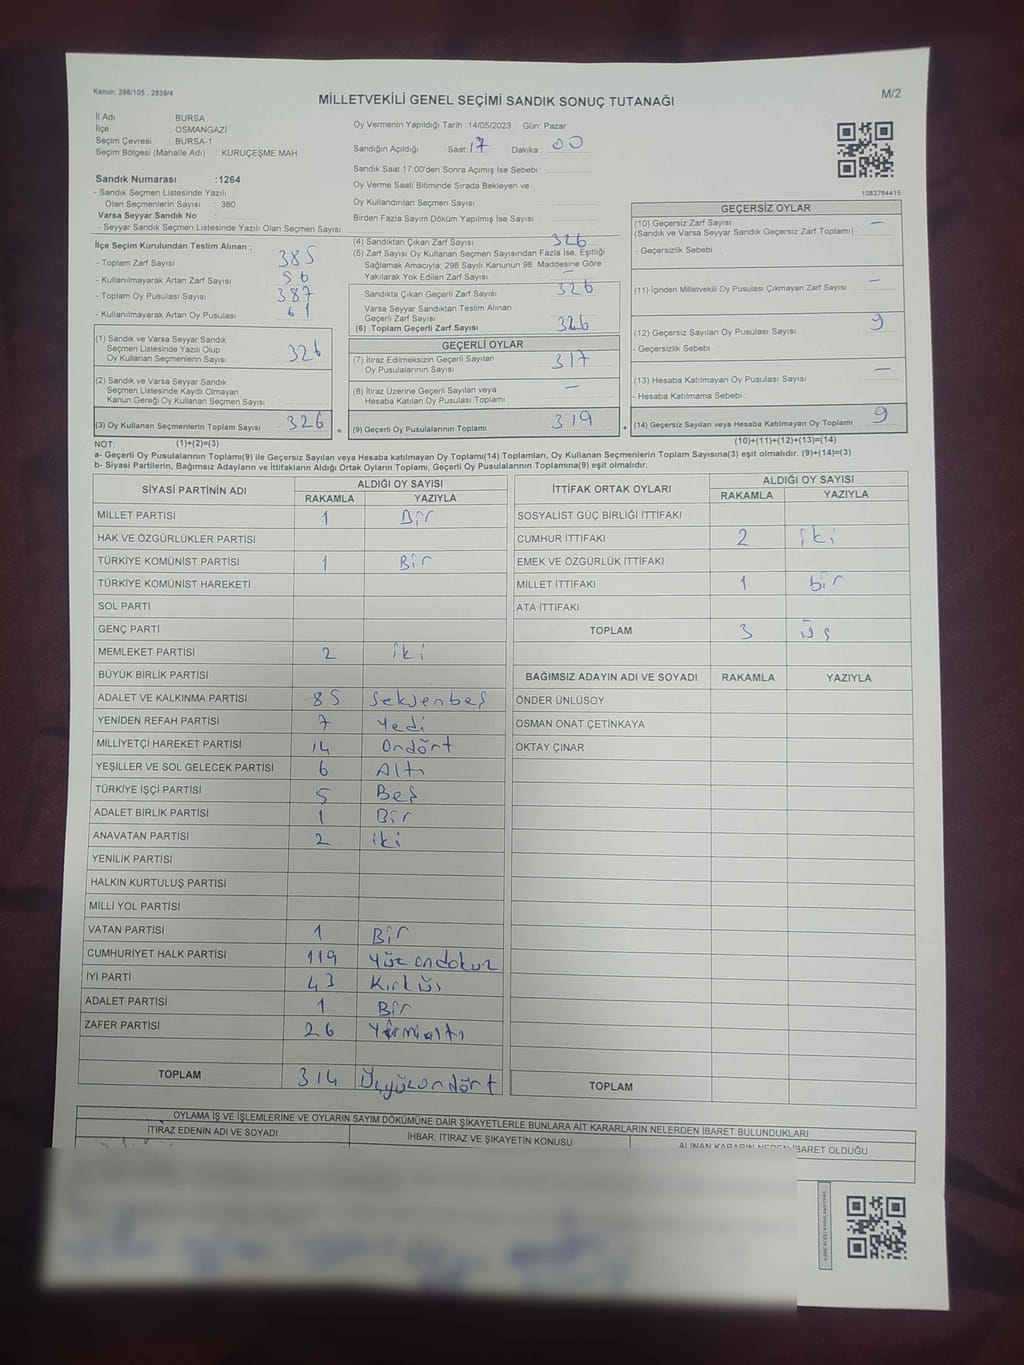 Kanun; 298/105 , 2839/4
MİLLETVEKİLİ GENEL SEÇİMİ SANDIK SONUÇ TUTANAĞI
M/2
İl Adı : BURSA
İlçe : OSMANGAZİ
Seçim Çevresi : BURSA-1
Seçim Bölgesi (Mahalle Adı) : KURUÇEŞME MAH
Sandık Numarası :1264
- Sandık Seçmen Listesinde Yazılı
Olan Seçmenlerin Sayısı : 380
Varsa Seyyar Sandık No :
- Seyyar Sandık Seçmen Listesinde Yazılı Olan Seçmen Sayısı
Oy Vermenin Yapıldığı Tarih :14/05/2023 Gün: Pazar
Sandığın Açıldığı Saat: 17 Dakika : 00
Sandık Saat 17:00'den Sonra Açımış İse Sebebi :
Oy Verme Saati Bitiminde Sırada Bekleyen ve
Oy Kullandırılan Seçmen Sayısı
Birden Fazla Sayım Döküm Yapılmış İse Sayısı
1083764415
İlçe Seçim Kurulundan Teslim Alınan ;
- Toplam Zarf Sayısı 385
- Kullanılmayarak Artan Zarf Sayısı : 56
- Toplam Oy Pusulası Sayısı 387
- Kullanılmayarak Artan Oy Pusulası 61
(1) Sandık ve Varsa Seyyar Sandık
Seçmen Listesinde Yazılı Olup
Oy Kullanan Seçmenlerin Sayısı 326
(2) Sandık ve Varsa Seyyar Sandık
Seçmen Listesinde Kayıtlı Olmayan
Kanun Gereği Oy Kullanan Seçmen Sayısı
(3) Oy Kullanan Seçmenlerin Toplam Sayısı 326 =
(4) Sandıktan Çıkan Zarf Sayısı 326
(5) Zarf Sayısı Oy Kullanan Seçmen Sayısından Fazla İse, Eşitliği
Sağlamak Amacıyla; 298 Sayılı Kanunun 98. Maddesine Göre
Yakılarak Yok Edilen Zarf Sayısı : —
Sandıkta Çıkan Geçerli Zarf Sayısı : 326
Varsa Seyyar Sandıktan Teslim Alınan
Geçerli Zarf Sayısı
(6) Toplam Geçerli Zarf Sayısı 326
GEÇERLİ OYLAR
(7) İtiraz Edilmeksizin Geçerli Sayılan
Oy Pusulalarının Sayısı : 317
(8) İtiraz Üzerine Geçerli Sayılan veya
Hesaba Katılan Oy Pusulası Toplamı —
(9) Geçerli Oy Pusulalarının Toplamı : 319 +
GEÇERSİZ OYLAR
(10) Geçersiz Zarf Sayısı
(Sandık ve Varsa Seyyar Sandık Geçersiz Zarf Toplamı) : —
- Geçersizlik Sebebi :
(11) İçinden Milletvekili Oy Pusulası Çıkmayan Zarf Sayısı : —
(12) Geçersiz Sayılan Oy Pusulası Sayısı : 9
- Geçersizlik Sebebi :
(13) Hesaba Katılmayan Oy Pusulası Sayısı : —
- Hesaba Katılmama Sebebi :
(14) Geçersiz Sayılan veya Hesaba Katılmayan Oy Toplamı : 9
NOT: (1)+(2)=(3)
(10)+(11)+(12)+(13)=(14)
a- Geçerli Oy Pusulalarının Toplamı(9) ile Geçersiz Sayılan veya Hesaba Katılmayan Oy Toplamı(14) Toplamları, Oy Kullanan Seçmenlerin Toplam Sayısına(3) eşit olmalıdır. (9)+(14)=(3)
b- Siyasi Partilerin, Bağımsız Adayların ve İttifakların Aldığı Ortak Oyların Toplamı, Geçerli Oy Pusulalarının Toplamına(9) eşit olmalıdır.
SİYASİ PARTİNİN ADI
ALDIĞI OY SAYISI
RAKAMLA YAZIYLA
MİLLET PARTİSİ 1 Bir
HAK VE ÖZGÜRLÜKLER PARTİSİ
TÜRKİYE KOMÜNİST PARTİSİ 1 Bir
TÜRKİYE KOMÜNİST HAREKETİ
SOL PARTİ
GENÇ PARTİ
MEMLEKET PARTİSİ 2 iki
BÜYÜK BİRLİK PARTİSİ
ADALET VE KALKINMA PARTİSİ 85 Seksenbeş
YENİDEN REFAH PARTİSİ 7 Yedi
MİLLİYETÇİ HAREKET PARTİSİ 14 Ondört
YEŞİLLER VE SOL GELECEK PARTİSİ 6 Altı
TÜRKİYE İŞÇİ PARTİSİ 5 Beş
ADALET BİRLİK PARTİSİ 1 Bir
ANAVATAN PARTİSİ 2 iki
YENİLİK PARTİSİ
HALKIN KURTULUŞ PARTİSİ
MİLLİ YOL PARTİSİ
VATAN PARTİSİ 1 Bir
CUMHURİYET HALK PARTİSİ 119 Yüz ondokuz
İYİ PARTİ 43 Kırküç
ADALET PARTİSİ 1 Bir
ZAFER PARTİSİ 26 Yirmialtı
TOPLAM 314 Üçyüzondört
İTTİFAK ORTAK OYLARI
ALDIĞI OY SAYISI
RAKAMLA YAZIYLA
SOSYALİST GÜÇ BİRLİĞİ İTTİFAKI
CUMHUR İTTİFAKI 2 iki
EMEK VE ÖZGÜRLÜK İTTİFAKI
MİLLET İTTİFAKI 1 bir
ATA İTTİFAKI
TOPLAM 3 üç
BAĞIMSIZ ADAYIN ADI VE SOYADI RAKAMLA YAZIYLA
ÖNDER ÜNLÜSOY
OSMAN ONAT ÇETİNKAYA
OKTAY ÇINAR
TOPLAM
OYLAMA İŞ VE İŞLEMLERİNE VE OYLARIN SAYIM DÖKÜMÜNE DAİR ŞİKAYETLERLE BUNLARA AİT KARARLARIN NELERDEN İBARET BULUNDUKLARI
İTİRAZ EDENİN ADI VE SOYADI
İHBAR, İTİRAZ VE ŞİKAYETİN KONUSU
ALINAN KARARIN NEDEN İBARET OLDUĞU